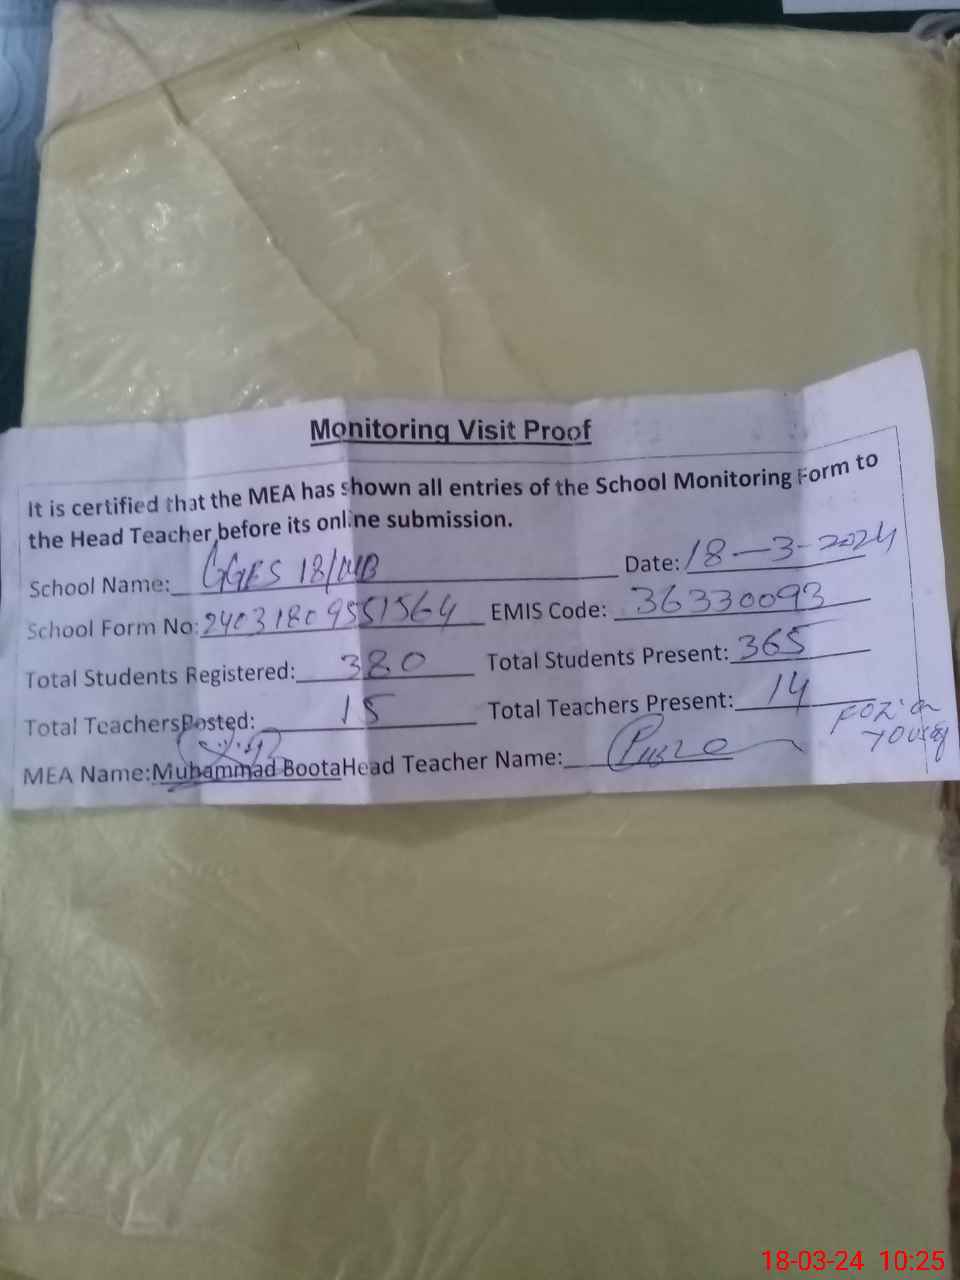 Monitoring Visit Proof
It is certified that the MEA has shown all entries of the School Monitoring Form to
the Head Teacher before its online submission.
School Name: GGES 18/WB Date: 18-3-2024
School Form No: 24031809551564 EMIS Code: 36330093
Total Students Registered: 380 Total Students Present: 365
Total TeachersPosted: 15 Total Teachers Present: 14
MEA Name:Muhammad BootaHead Teacher Name:
18-03-24 10:25